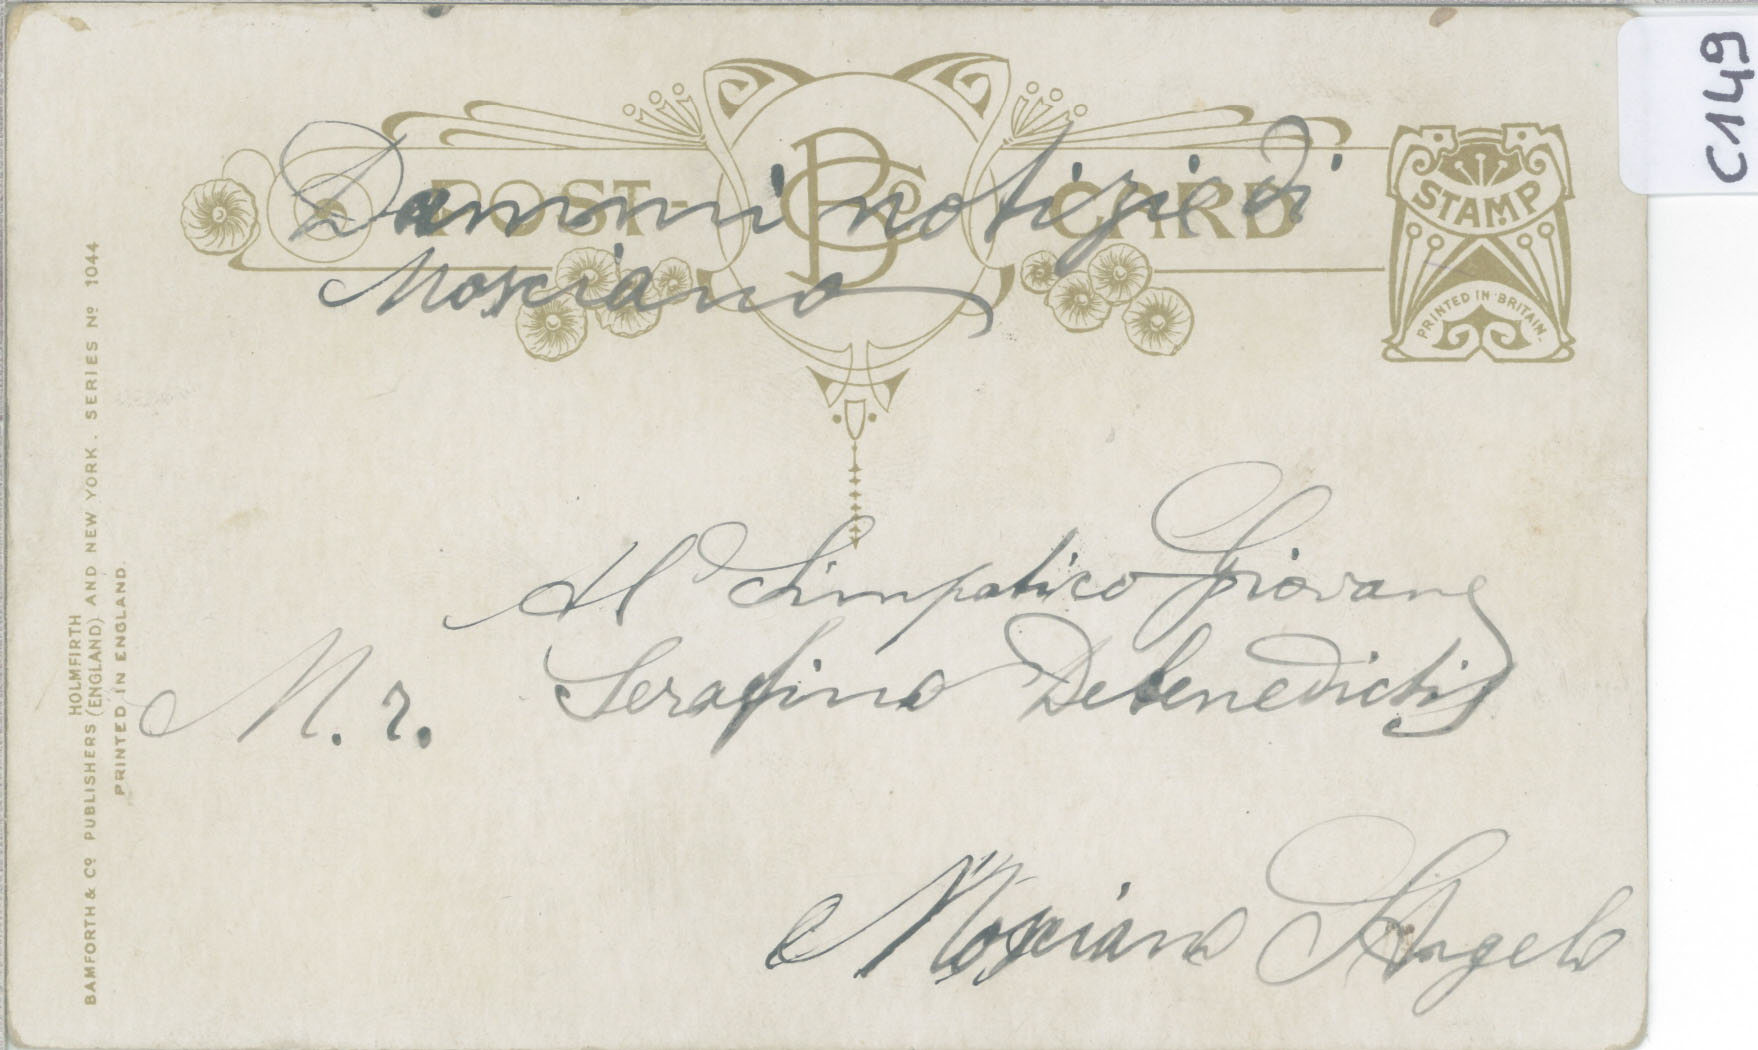 C149
POST-CARD
BCo
STAMP
PRINTED IN BRITAIN.
Dammi notizie di
Mosciano
Al Simpatico Giovane
M.r. Serafino Debenedictis
Mosciano S Angelo
HOLMFIRTH
BAMFORTH & Co PUBLISHERS (ENGLAND) AND NEW YORK. SERIES No 1044
PRINTED IN ENGLAND.